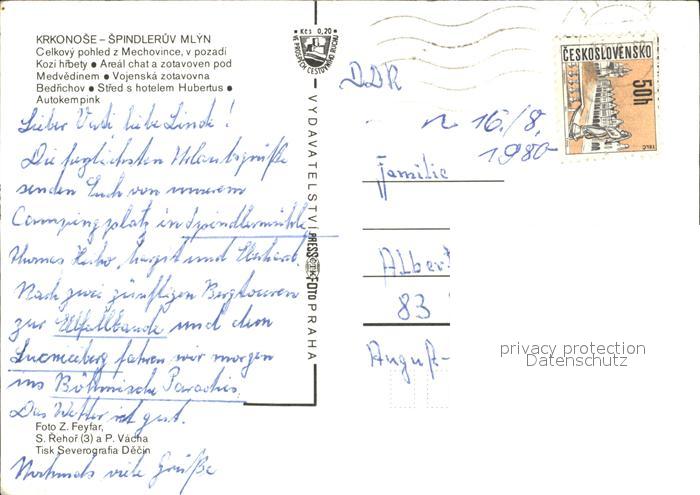 KRKONOŠE – ŠPINDLERŮV MLÝN
Celkový pohled z Mechovince, v pozadí
Kozí hřbety ● Areál chat a zotavoven pod
Medvědínem ● Vojenská zotavovna
Bedřichov ● Střed s hotelem Hubertus ●
Autokempink
Lieber Veti liebe Linde!
Die herzlichsten Urlaubsgrüße
senden Euch von unserem
Campingplatz in Spindlermühle
Thomas Margit und Eberhard.
Nach zwei zünftigen Bergtouren
zur Elbfallbaude und dem
fahren wir morgen
ins Böhmische Paradies.
Das Wetter ist gut.
Foto Z. Feyfar,
S. Řehoř (3) a P. Vácha
Tisk Severografia Děčín
Nochmals viele Grüße
Kčs 0,20
VE PROSPĚCH CESTOVNÍHO RUCHU
VYDAVATELSTVÍ PRESSFOTO PRAHA
ČTK
DDR
16./8.
1980
Familie
Albert
83
August-
ČESKOSLOVENSKO
50h
TELČ
privacy protection
Datenschutz